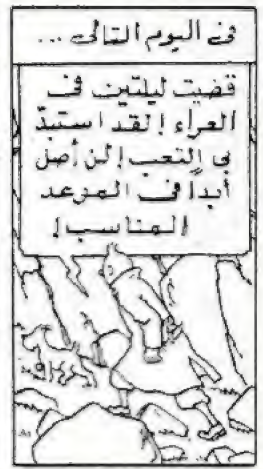 فى اليوم التالى ...
قضيت ليلتين فى
العراء ! لقد استبدّ
بى التعب ! لن أصل
أبداً فى الموعد
المناسب !